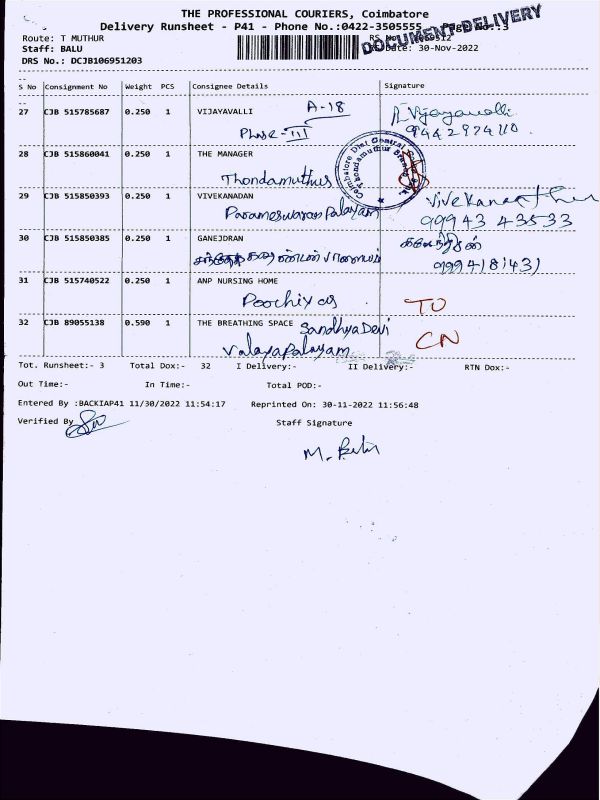 THE PROFESSIONAL COURIERS, Coimbatore
Delivery Runsheet - P41 - Phone No.:0422-3505555 Page No.:3
DOCUMENT DELIVERY
Route: T MUTHUR
Staff: BALU
RS Date: 30-Nov-2022
DRS No.: DCJB106951203
S No Consignment No Weight PCS Consignee Details Signature
27 CJB 515785687 0.250 1 VIJAYAVALLI A-18
Phase-III
28 CJB 515860041 0.250 1 THE MANAGER
Thondamuthur
29 CJB 515850393 0.250 1 VIVEKANADAN
Parameswaran Palayam 99943 43533
30 CJB 515850385 0.250 1 GANEJDRAN
31 CJB 515740522 0.250 1 ANP NURSING HOME
TO
32 CJB 89055138 0.590 1 THE BREATHING SPACE Sandhya Devi
CN
Tot. Runsheet:- 3 Total Dox:- 32 I Delivery:- II Delivery:- RTN Dox:-
Out Time:- In Time:- Total POD:-
Entered By :BACKIAP41 11/30/2022 11:54:17 Reprinted On: 30-11-2022 11:56:48
Verified By Staff Signature
M. Balu